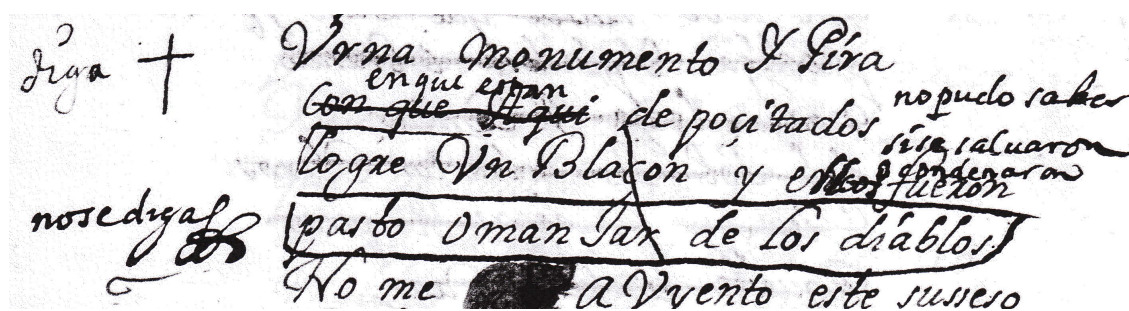 diga
Vrna monumento Y Pira
en qui estan
Con que Aqui de pocitados
no pudo saber
si se saluaron
o condenaron
logre Vn Blaçon y fueron
nosediga
pasto o man Jar de los diablos
No me a Vyento este susseso